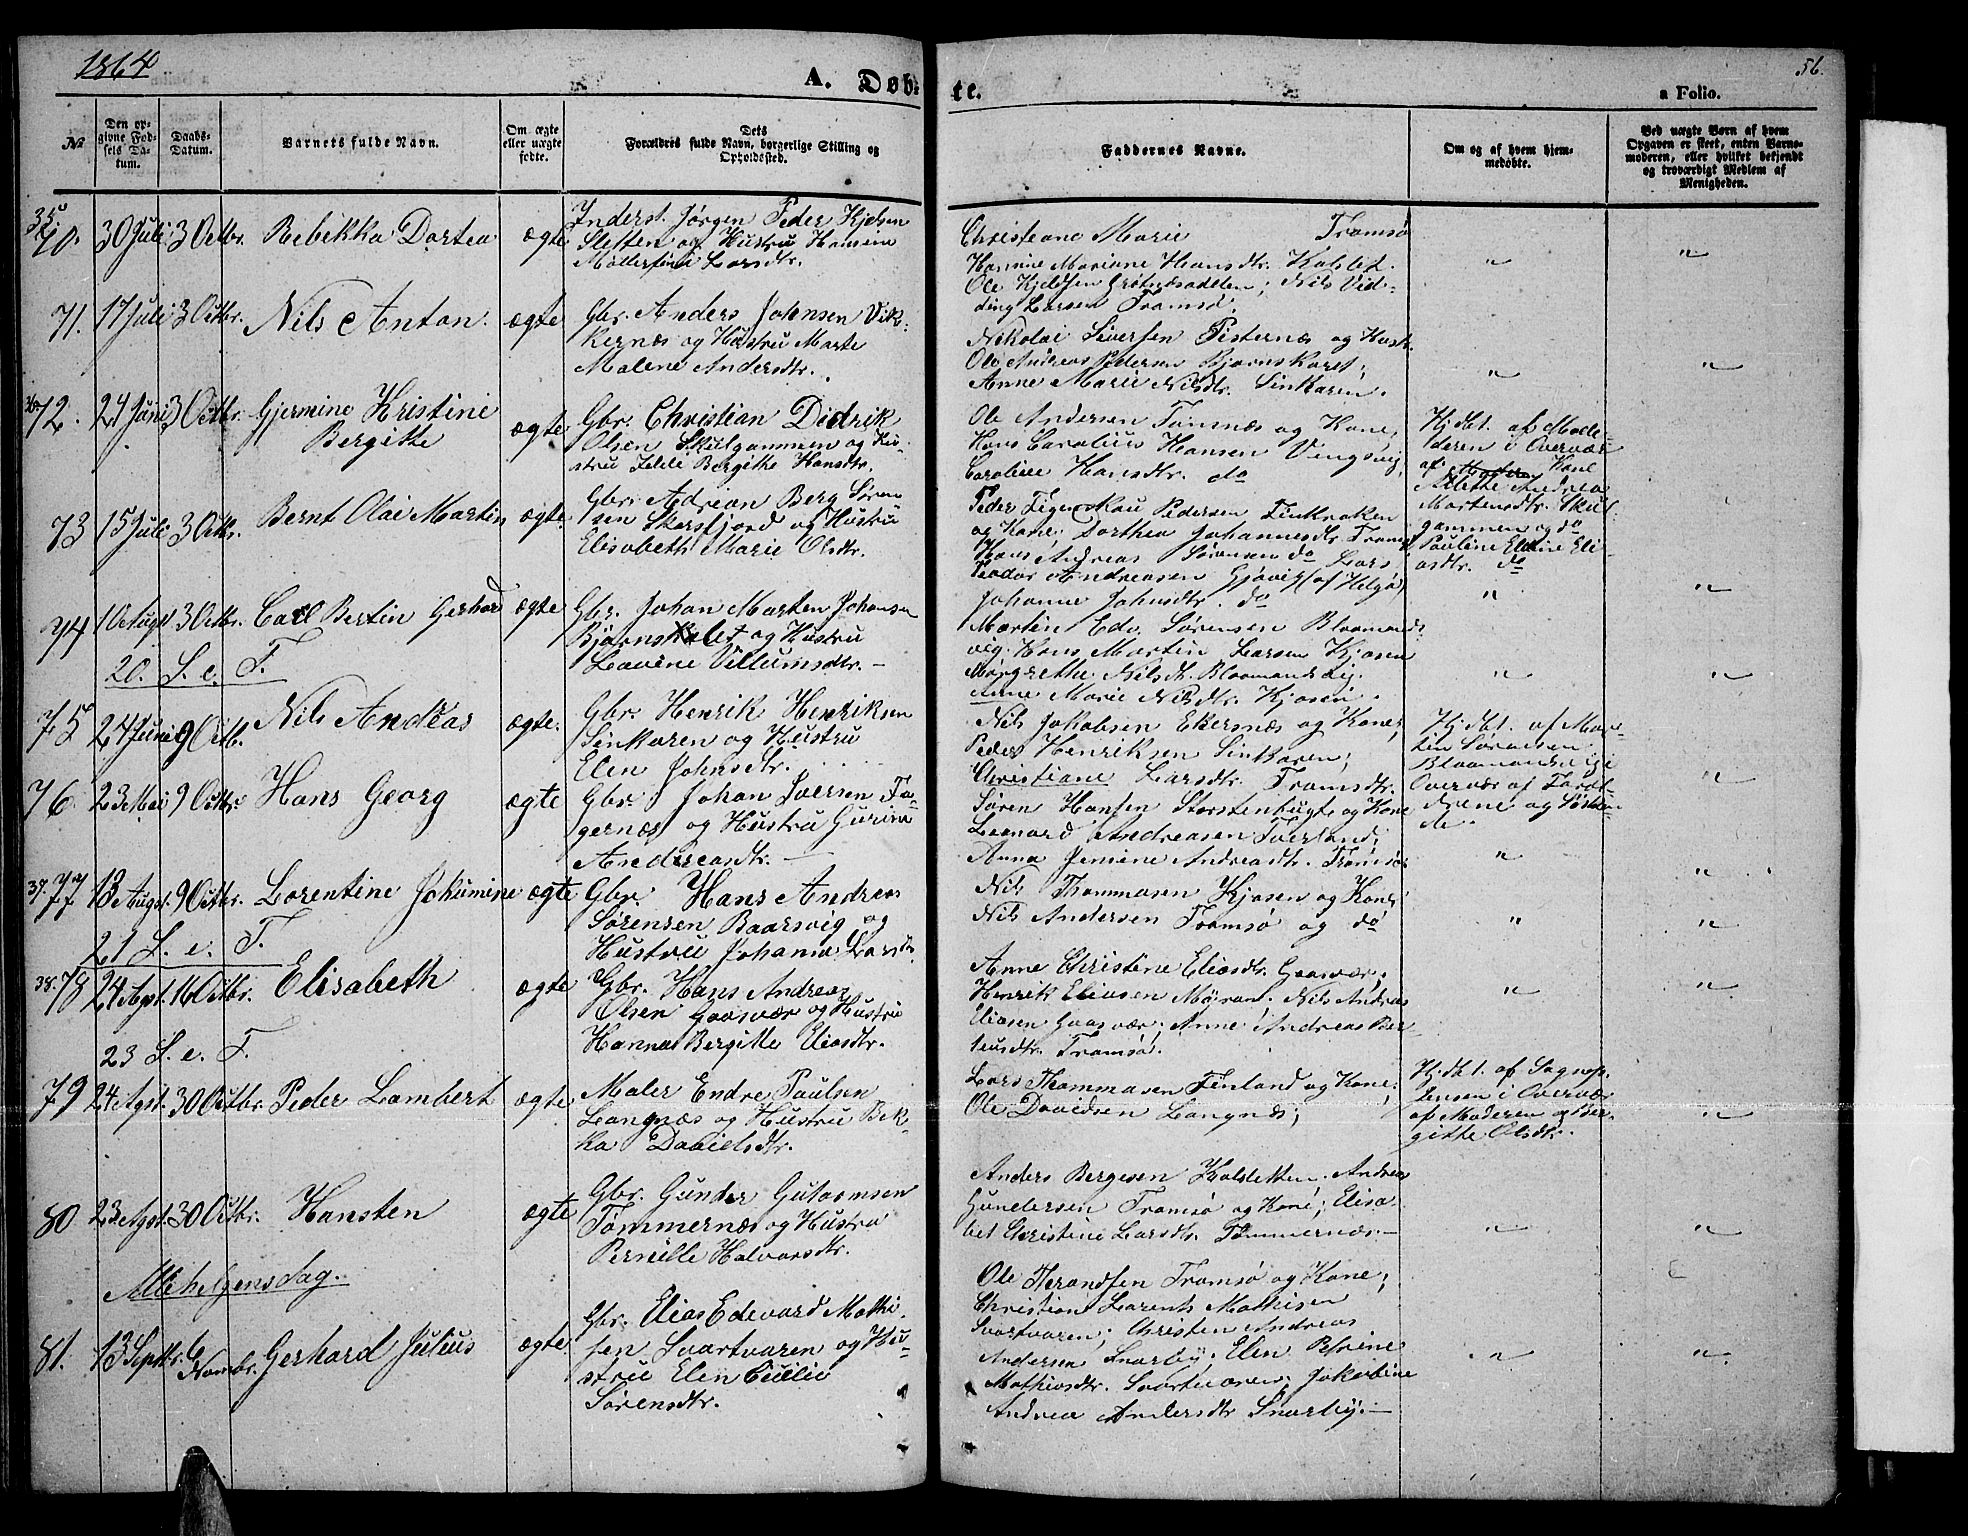 1864
A. Døb-
te.
56.
a Folio.
No
Den op-
givne Fød-
sels Da-
tum.
Daabs-
Datum.
Barnets fulde Navn.
Om ægte
eller uægte
fødte.
Dets
Forældres fulde Navn, borgerlige Stilling og
Opholdssted.
Faddernes Navne.
Om og af hvem hjem-
medøbte.
Ved uægte Børn af hvem
Opgaven er skeet, enten Barne-
moderen, eller hvilket bekjendt
og troværdigt Medlem af
Menigheden.
35
70. 30 Juli 3 Octbr. Rebikka Dortea ægte
Inderst. Jørgen Peder Kjelsen
Sletten og Hustru Hansine
Larsdtr.
Christiane Marie Tromsø
Hansine Mariane Hansdtr. Kalslet.
Ole Kjeldsen ; Nils Vid-
ding Larsen Tromsø.
"
"
71. 17 Juli 3 Octbr. Nils Anton. ægte
Gbr. Anders Johnsen Vik-
kernæs og Hustru Marte
Malene Andersdtr.
Nikolai Siversen Pisternæs og Hust.
Ole Andreas Pedersen Bjørnskaret;
Anne Marie Nilsdtr. Sinkaren.
"
"
36. 72. 24 Juni 3 Octbr. Gjermine Kristine
Bergitte
ægte
Gbr. Christian Didrik
Olsen Skulgammen og Hu-
stru Bergitte Hansdtr.
Ole Andersen Tømnæs og Kone;
Hans Carolius Hansen Vengsvig;
Caroline Hansdtr. do
Hjdbt. af Mod-
deren i Overvær
af Kone
Alette Andrea
Mortensdtr. Skul-
gammen og do
Pauline Eline Eli-
asdtr. do
73 15 Juli 3 Octbr. Bernt Olai Martin ægte
Gbr. Adrian Berg Søren
sen Skarsfjord og Hustru
Elisabeth Marie Olsdtr.
Peder Pedersen Finkroken
og Kone; Dorthea Johannesdtr. Tromsø;
Hans Andreas Sørensen do Lars
Peodor Andreasen Gjøvig (af Helgø)
Johanne Johnsdtr. do
"
"
74 1 Augt 3 Octbr. Carl Bertin Gerhard ægte
Gbr. Johan Marten Johansen
Bjørnskalet og Hustru
Lavine Villumsdtr. —
Martin Edv. Sørensen Bloomands-
vig. Hans Martin Larsen Kjosen
Margrethe Nilsdt. Bloomandsvig.
Anne Marie Nilsdtr. Kjosen.
"
"
20. S. e. T.
75 24 Juni 9 Octb. Nils Andreas ægte.
Gbr. Henrik Henriksen
Sinkaren og Hustru
Elen Johnsdtr.
Nils Jakobsen Ekernæs og Kone;
Peder Henriksen Sinkaren;
Christiane Larsdtr. Tromsdtr.
Hjdbt. af Mar-
tin Sørensen
Bloomandsvig i
Overvær af Foræl-
drene og Sødsken-
de.
"
76. 23 Mai 9 Octbr. Hans Georg ægte
Gbr. Johan Iversen Fa-
gernæs og Hustru Gurine
Andreasdtr. —
Søren Hansen Storstenhugte og Kone
Leonard Andreasen Tverland;
Anna Jensine Andreadtr. Tromsø
"
"
37. 77 13 Augst. 9 Octbr. Lorentine Johumine ægte
Gbr. Hans Andreas
Sørensen Baarsvig og
Hustru Johanna Larsdtr.
Nils Thommasen Kjosen og Kone;
Nils Andersen Tromsø og do
"
"
21 S. e. T.
38. 78 24 Agst. 16 Octbr. Elisabeth ægte
Gbr. Hans Andreas
Olsen Gaasvær og Hustru
Hanna Bergitte Eliasdtr.
Anne Christine Eliasdtr. Gaasvær;
Henrik Eliasen Myran. Nils Andreas
Eliasen Gaasvær; Anne Andreas Ber-
teusdtr. Tromsø.
"
"
23 S. e. T.
79 24 Agst. 30 Octbr. Peder Lambert ægte
Maler Endre Paulsen
Langnæs og Hustru Bek-
ka Davielsdtr.
Lars Thommasen Finland og Kone;
Ole Davidsen Langnæs;
Hjdbt. af Sognep.
Jensen i Overvær
af Moderen og Ber-
gitte Olsdtr.
"
80 23 Agst. 30 Octbr. Hansten ægte
Gbr. Gunder Gutormsen
Tømmernæs og Hustru
Pernille Halvorsdtr.
Anders Bergesen Kalsletten. Andreas
Gundersen Tromsø og Kone; Elisa-
bet Christine Larsdtr. Tømmernæs. —
"
"
Allehelgensdag.
81. 13 Septbr. 6
Novbr. Gerhard Julius ægte
Gbr. Elias Edevard Mathi-
sen Svartvaren og Hu-
stru Elen Cecilie
Sørensdtr.
Ole Perandsen Tromsø og Kone;
Christian Lorents Mathisen
Svartvaren; Christen Andreas
Andersen Snarby; Elen Petrine
Mathisdtr. Svartvaren; Jakobine
Andrea Andersdtr Snarby. —
"
"